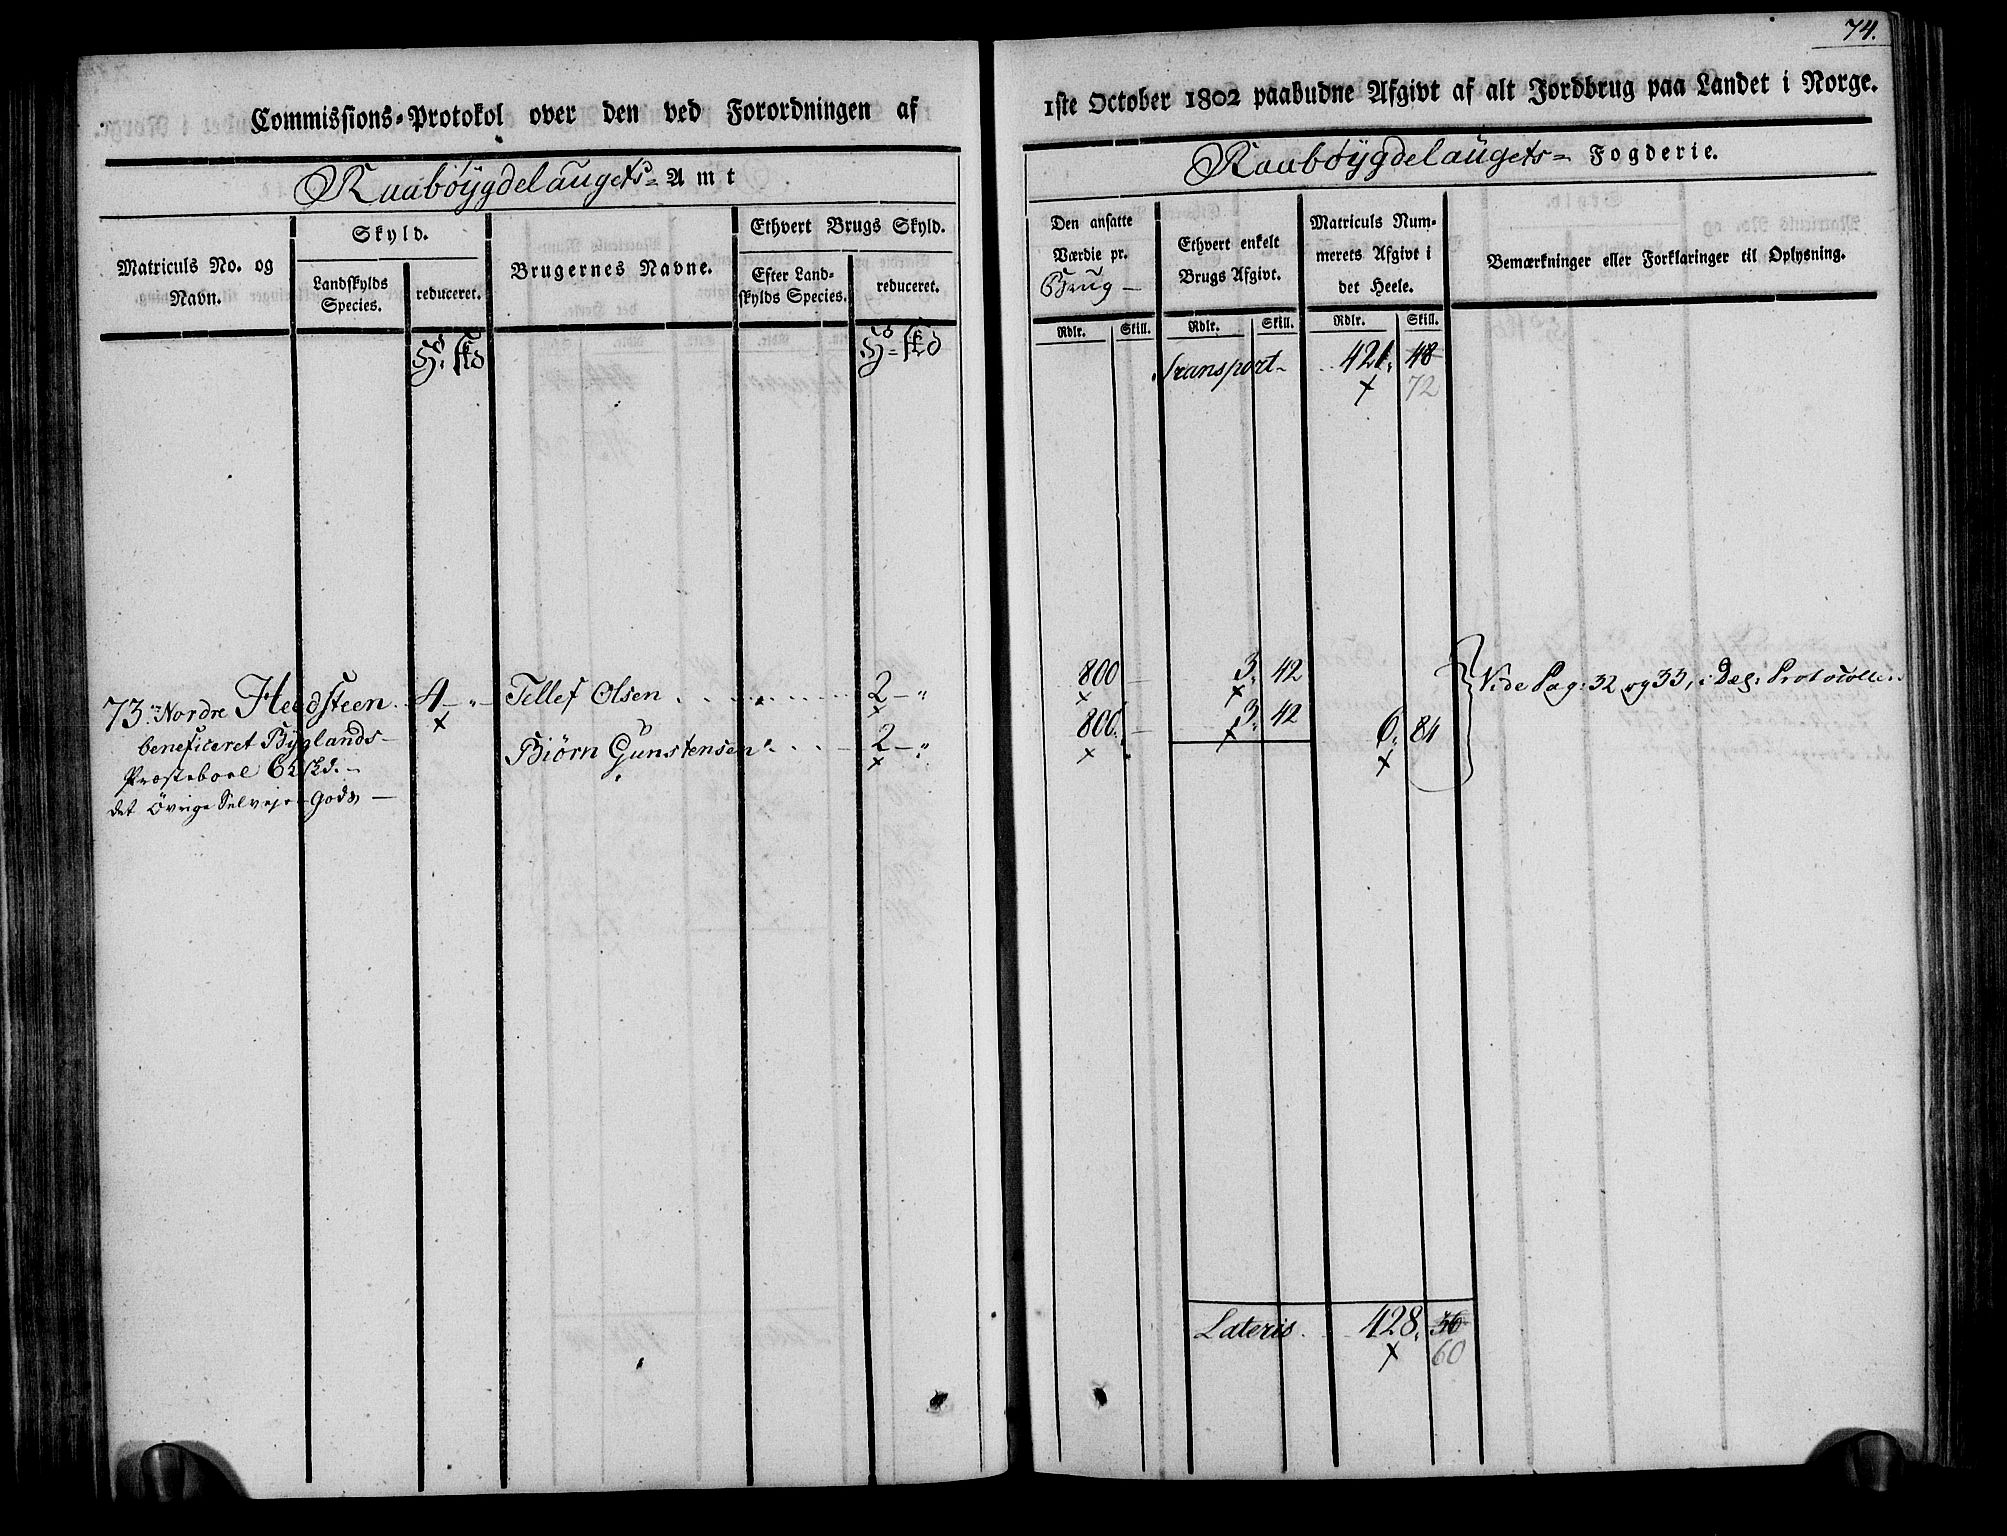 74.
Commissions-Protokol over den ved Forordningen af
1ste October 1802 paabudne Afgivt af alt Jordbrug paa Landet i Norge.
Raabøygdelaugets- Amt
Raabøygdelaugets- Fogderie.
Matriculs No. og Navn.
Skyld.
Landskylds Species.
reduceret.
Brugernes Navne.
Ethvert Brugs Skyld.
Efter Landskylds Species.
reduceret.
Den ansatte Værdie pr. Brug
Ethvert enkelt Brugs Afgivt.
Matriculs Nummerets Afgivt i det Heele.
Bemærkninger eller Forklaringer til Oplysning.
Rdlr. Skill. Rdlr. Skill. Rdlr. Skill.
Transport 421. 48
72
73. Nordre Heedsteen 4 Tellef Olsen 2 800 3. 42 Vide Pag: 32 og 33, i
beneficeret Byglands-
Biørn Gunstensen 2 800. 3. 42 6. 84
Præsteboel
det Övrige Selvejer Gods
Lateris 428. 36
60